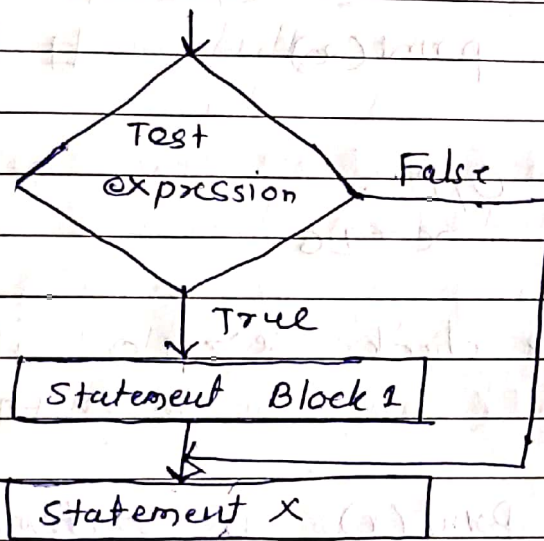 Test
expression
False
True
Statement Block 1
Statement X